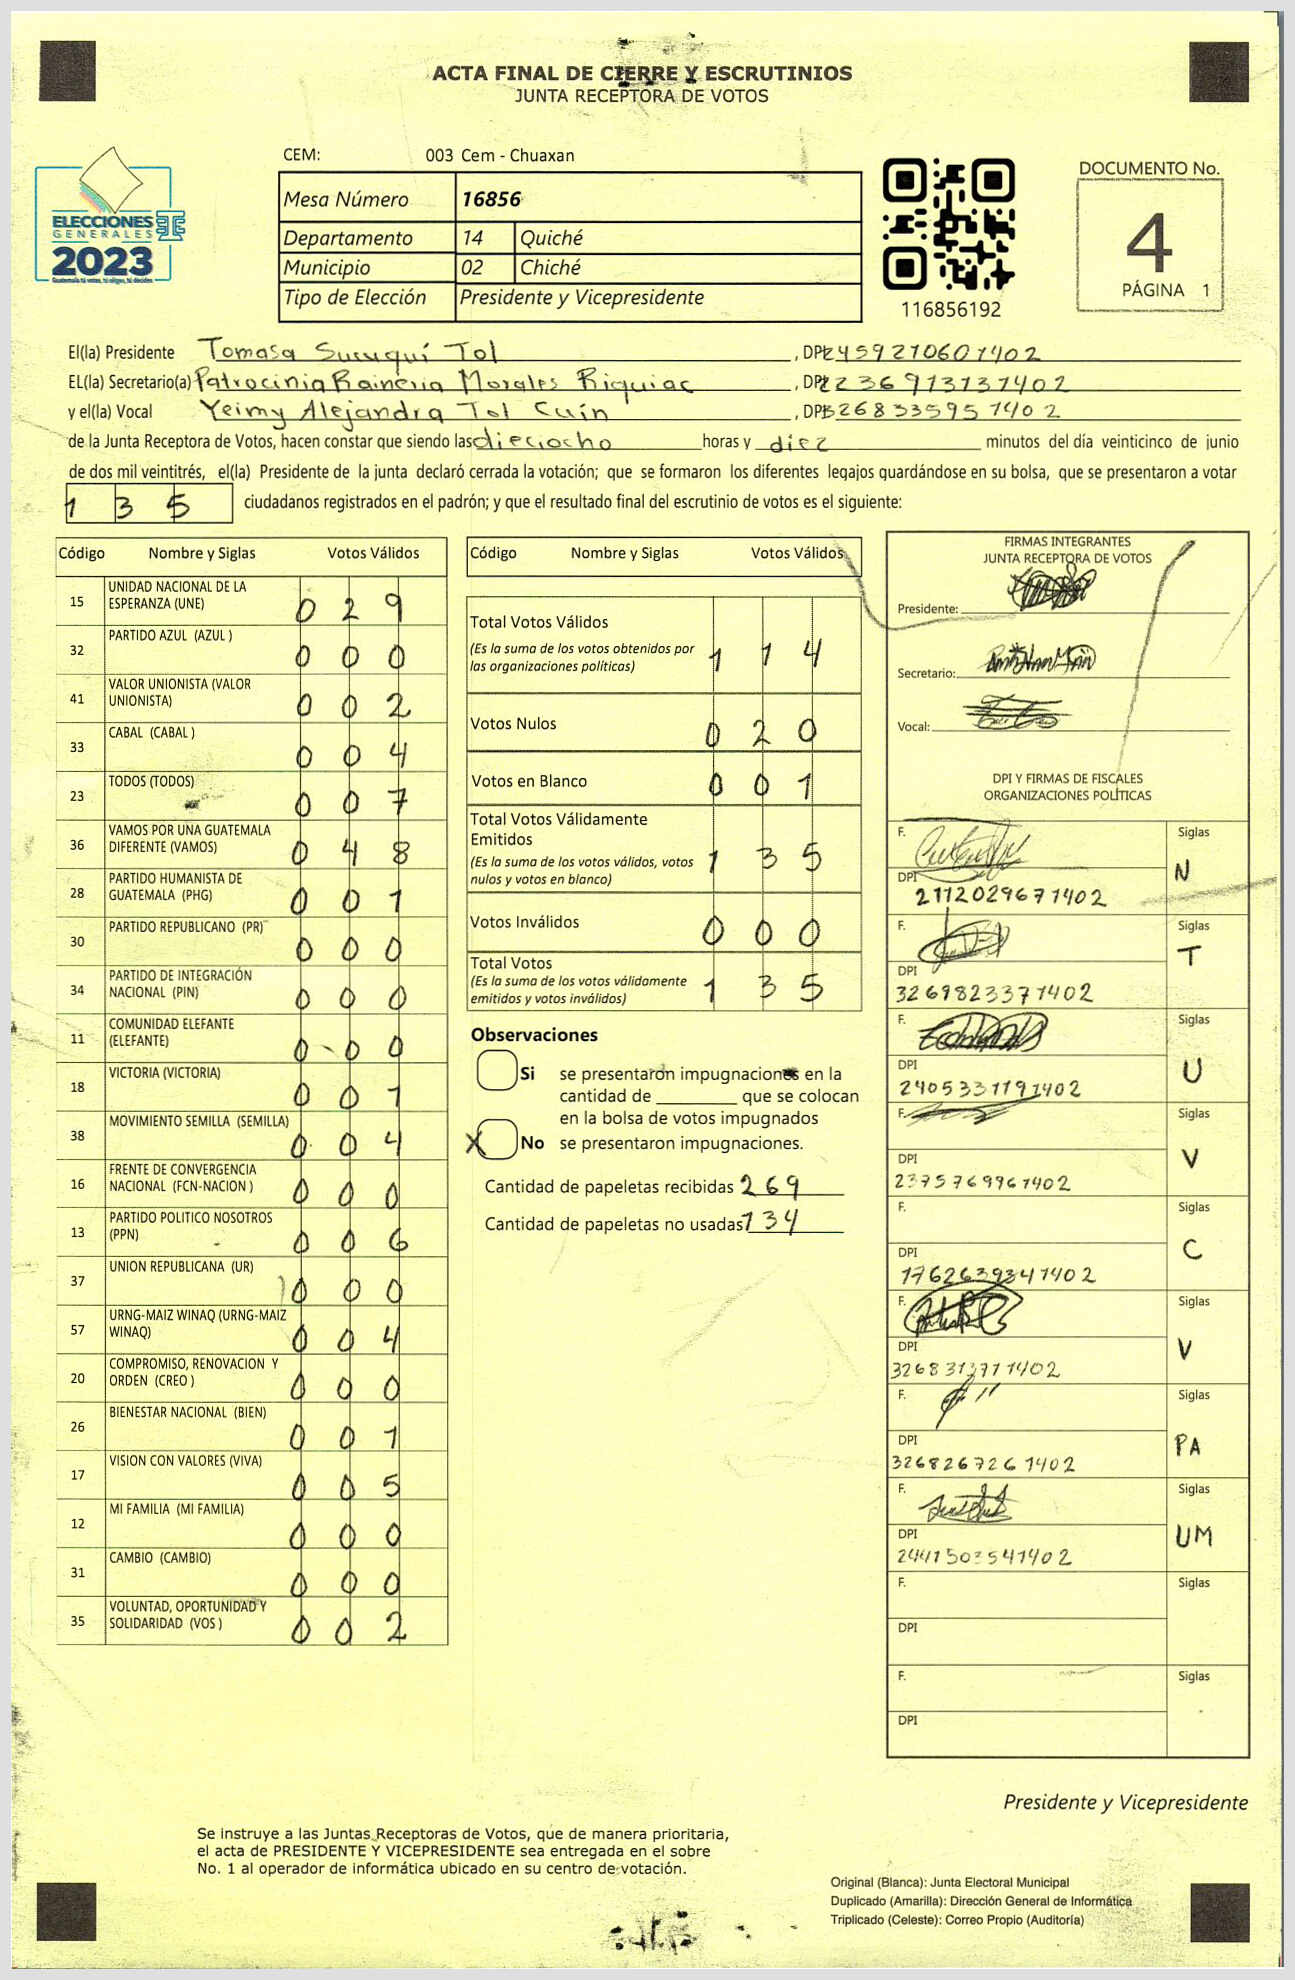 ACTA FINAL DE CIERRE Y ESCRUTINIOS
JUNTA RECEPTORA DE VOTOS
ELECCIONES
GENERALES
2023
Guatemala tú votas, tú eliges, tú decides
CEM: 003 Cem - Chuaxan
Mesa Número 16856
Departamento 14 Quiché
Municipio 02 Chiché
Tipo de Elección Presidente y Vicepresidente
116856192
DOCUMENTO No.
4
PÁGINA 1
El(la) Presidente Tomasa Sucuquí Tol, DPI 2459270601402
EL(la) Secretario(a) Patrocinia Raineria Morales Riquiac, DPI 2236913731402
y el(la) Vocal Yeimy Alejandra Tol Cuín, DPI 3268335951402
de la Junta Receptora de Votos, hacen constar que siendo las dieciocho horas y diez minutos del día veinticinco de junio
de dos mil veintitrés, el(la) Presidente de la junta declaró cerrada la votación; que se formaron los diferentes legajos quardándose en su bolsa, que se presentaron a votar
135 ciudadanos registrados en el padrón; y que el resultado final del escrutinio de votos es el siguiente:
Código Nombre y Siglas Votos Válidos
15 UNIDAD NACIONAL DE LA ESPERANZA (UNE) 029
32 PARTIDO AZUL (AZUL ) 000
41 VALOR UNIONISTA (VALOR UNIONISTA) 002
33 CABAL (CABAL ) 004
23 TODOS (TODOS) 007
36 VAMOS POR UNA GUATEMALA DIFERENTE (VAMOS) 048
28 PARTIDO HUMANISTA DE GUATEMALA (PHG) 001
30 PARTIDO REPUBLICANO (PR) 000
34 PARTIDO DE INTEGRACIÓN NACIONAL (PIN) 000
11 COMUNIDAD ELEFANTE (ELEFANTE) 000
18 VICTORIA (VICTORIA) 001
38 MOVIMIENTO SEMILLA (SEMILLA) 004
16 FRENTE DE CONVERGENCIA NACIONAL (FCN-NACION ) 000
13 PARTIDO POLITICO NOSOTROS (PPN) 006
37 UNION REPUBLICANA (UR) 000
57 URNG-MAIZ WINAQ (URNG-MAIZ WINAQ) 004
20 COMPROMISO, RENOVACION Y ORDEN (CREO ) 000
26 BIENESTAR NACIONAL (BIEN) 001
17 VISION CON VALORES (VIVA) 005
12 MI FAMILIA (MI FAMILIA) 000
31 CAMBIO (CAMBIO) 000
35 VOLUNTAD, OPORTUNIDAD Y SOLIDARIDAD (VOS ) 002
Código Nombre y Siglas Votos Válidos
Total Votos Válidos 114
(Es la suma de los votos obtenidos por
las organizaciones políticas)
Votos Nulos 020
Votos en Blanco 001
Total Votos Válidamente
Emitidos 135
(Es la suma de los votos válidos, votos
nulos y votos en blanco)
Votos Inválidos 000
Total Votos 135
(Es la suma de los votos válidamente
emitidos y votos inválidos)
Observaciones
Si se presentaron impugnaciones en la
cantidad de ________ que se colocan
en la bolsa de votos impugnados
X No se presentaron impugnaciones.
Cantidad de papeletas recibidas 269
Cantidad de papeletas no usadas 134
FIRMAS INTEGRANTES
JUNTA RECEPTORA DE VOTOS
Presidente:
Secretario:
Vocal:
DPI Y FIRMAS DE FISCALES
ORGANIZACIONES POLÍTICAS
F. Siglas
N
DPI
2112029671402
F. Siglas
T
DPI
3269823371402
F. Siglas
U
DPI
2405331191402
F. Siglas
V
DPI
2375769961402
F. Siglas
C
DPI
1762639341402
F. Siglas
V
DPI
3268313771402
F. Siglas
PA
DPI
3268267261402
F. Siglas
UM
DPI
2441503541402
F. Siglas
DPI
F. Siglas
DPI
Presidente y Vicepresidente
Se instruye a las Juntas Receptoras de Votos, que de manera prioritaria,
el acta de PRESIDENTE Y VICEPRESIDENTE sea entregada en el sobre
No. 1 al operador de informática ubicado en su centro de votación.
Original (Blanca): Junta Electoral Municipal
Duplicado (Amarilla): Dirección General de Informática
Triplicado (Celeste): Correo Propio (Auditoría)